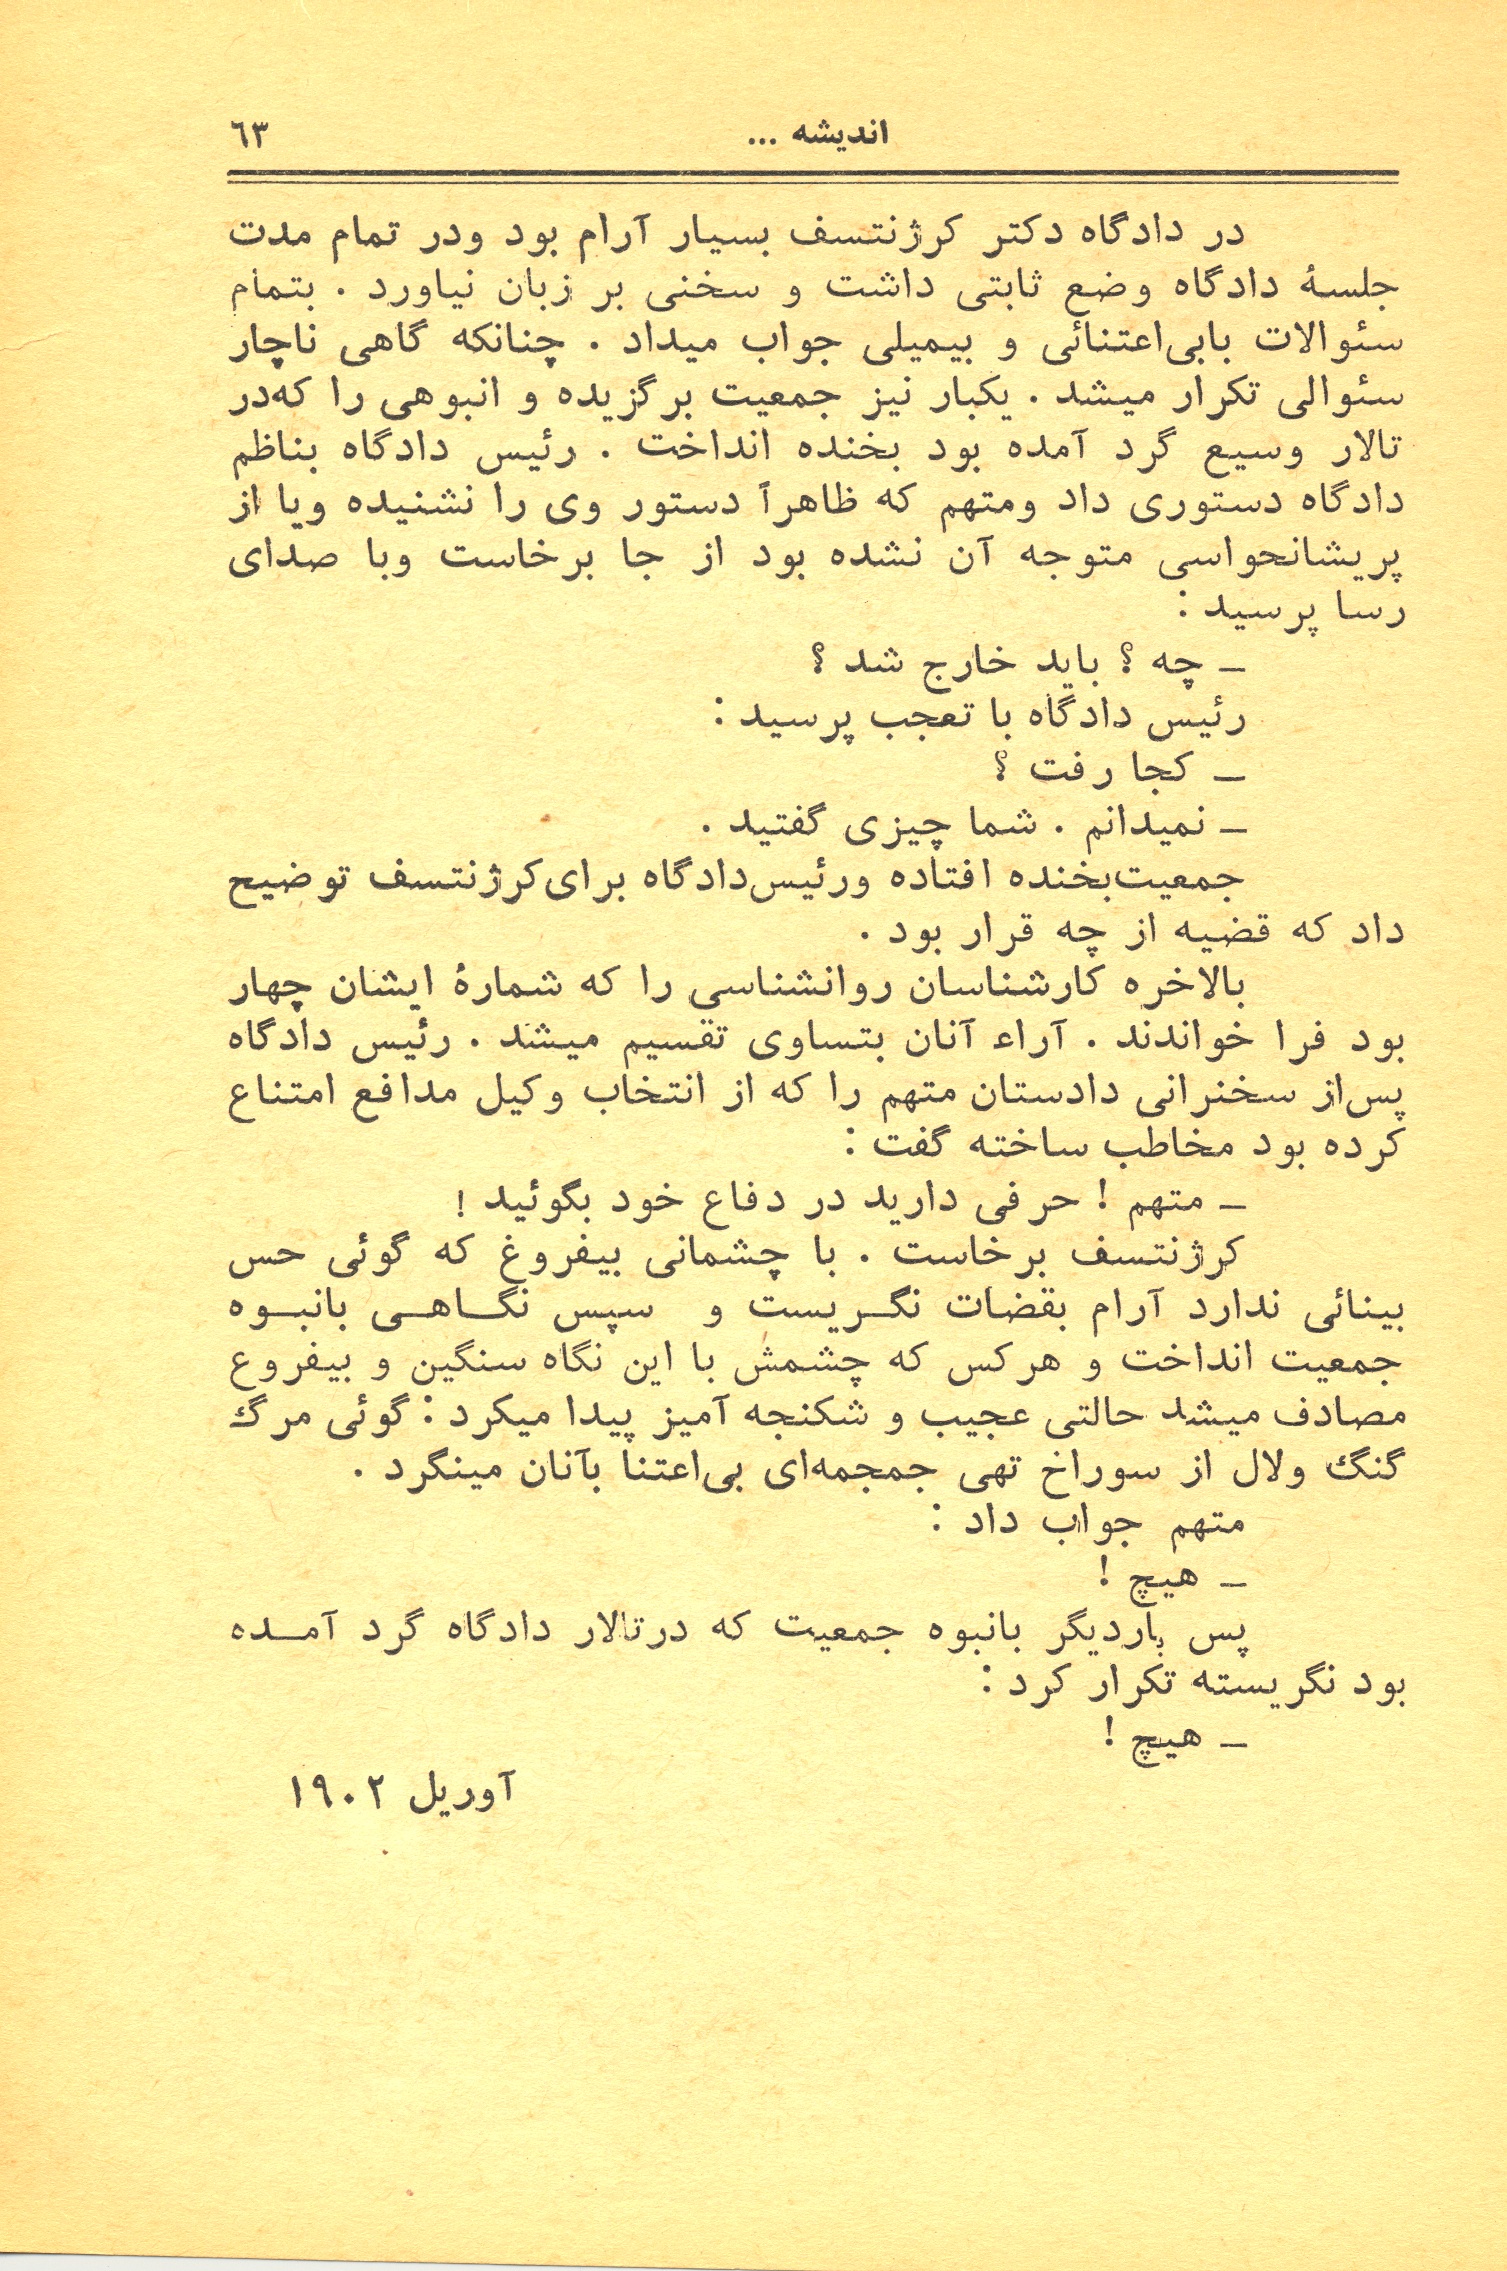 اندیشه ... ٦٣
در دادگاه دکتر کرژنتسف بسیار آرام بود ودر تمام مدت
جلسهٔ دادگاه وضع ثابتی داشت و سخنی بر زبان نیاورد . بتمام
سئوالات بابی‌اعتنائی و بیمیلی جواب میداد . چنانکه گاهی ناچار
سئوالی تکرار میشد . یکبار نیز جمعیت برگزیده و انبوهی را که‌در
تالار وسیع گرد آمده بود بخنده انداخت . رئیس دادگاه بناظم
دادگاه دستوری داد ومتهم که ظاهراً دستور وی را نشنیده ویا از
پریشانحواسی متوجه آن نشده بود از جا برخاست وبا صدای
رسا پرسید :
ـ چه ؟ باید خارج شد ؟
رئیس دادگاه با تعجب پرسید :
ـ کجا رفت ؟
ـ نمیدانم . شما چیزی گفتید .
جمعیت‌بخنده افتاده ورئیس‌دادگاه برای‌کرژنتسف توضیح
داد که قضیه از چه قرار بود .
بالاخره کارشناسان روانشناسی را که شمارهٔ ایشان چهار
بود فرا خواندند . آراء آنان بتساوی تقسیم میشد . رئیس دادگاه
پس‌از سخنرانی دادستان متهم را که از انتخاب وکیل مدافع امتناع
کرده بود مخاطب ساخته گفت :
ـ متهم ! حرفی دارید در دفاع خود بگوئید !
کرژنتسف برخاست . با چشمانی بیفروغ که گوئی حس
بینائی ندارد آرام بقضات نگـریست و سپس نگـاهـی بانبـوه
جمعیت انداخت و هرکس که چشمش با این نگاه سنگین و بیفروع
مصادف میشد حالتی عجیب و شکنجه آمیز پیدا میکرد : گوئی مرگ
گنگ ولال از سوراخ تهی جمجمه‌ای بی‌اعتنا بآنان مینگرد .
متهم جواب داد :
ـ هیچ !
پس باردیگر بانبوه جمعیت که درتالار دادگاه گرد آمـده
بود نگریسته تکرار کرد :
ـ هیچ !
آوریل ١٩٠٢